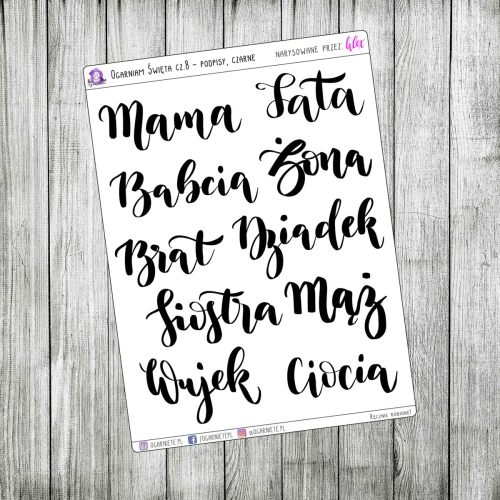 Ogarniam Święta cz.8 - podpisy, czarne
narysowane przez: Glox
Mama Tata
Babcia Żona
Brat Dziadek
Siostra Mąż
Wujek Ciocia
ogarniete.pl /ogarnietepl @ogarniete.pl
Ręcznie robione!